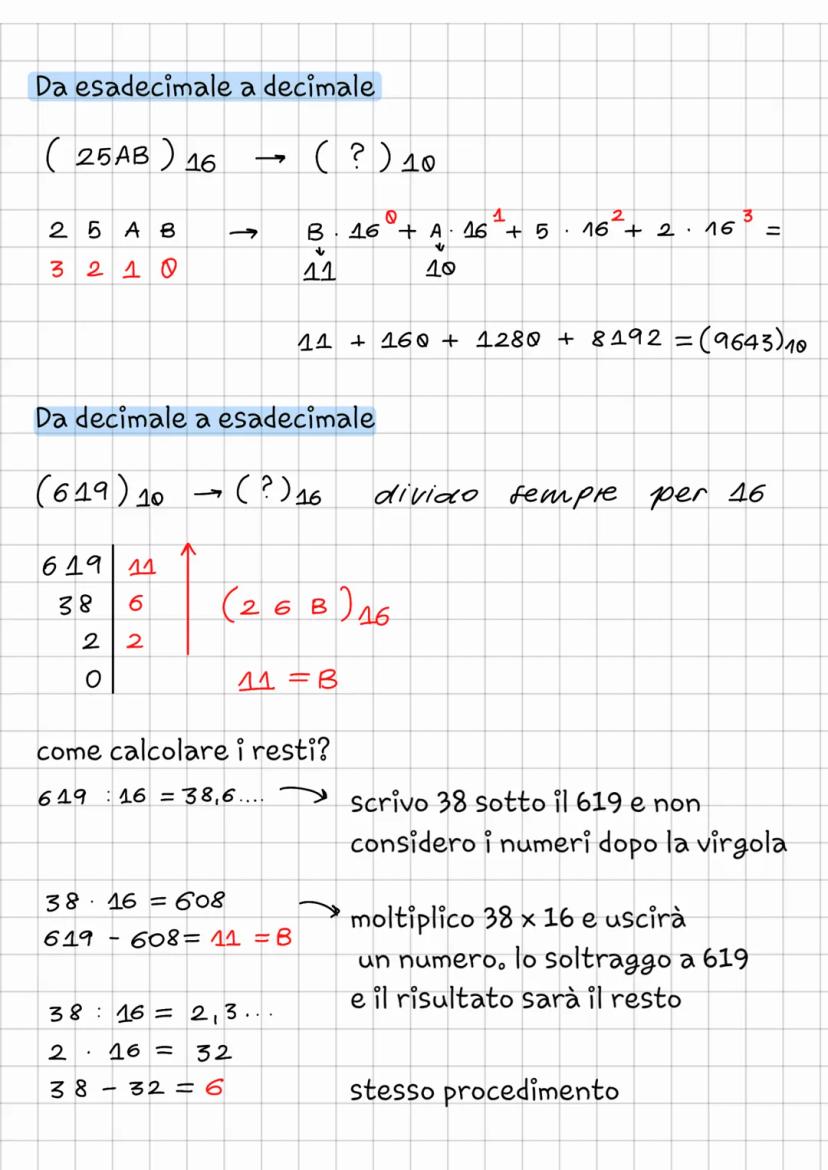 Da esadecimale a decimale
( 25AB )₁₆ → ( ? )₁₀
2 5 A B → B · 16⁰ + A · 16¹ + 5 · 16² + 2 · 16³ =
3 2 1 0 11 10
11 + 160 + 1280 + 8192 = (9643)₁₀
Da decimale a esadecimale
(619)₁₀ → (?)₁₆ divido sempre per 16
619 | 11
38 | 6 (2 6 B)₁₆
2 | 2
0 | 11 = B
come calcolare i resti?
619 : 16 = 38,6.... → scrivo 38 sotto il 619 e non
considero i numeri dopo la virgola
38 · 16 = 608 → moltiplico 38 x 16 e uscirà
619 - 608 = 11 = B un numero. lo soltraggo a 619
e il risultato sarà il resto
38 : 16 = 2,3...
2 · 16 = 32
38 - 32 = 6 stesso procedimento